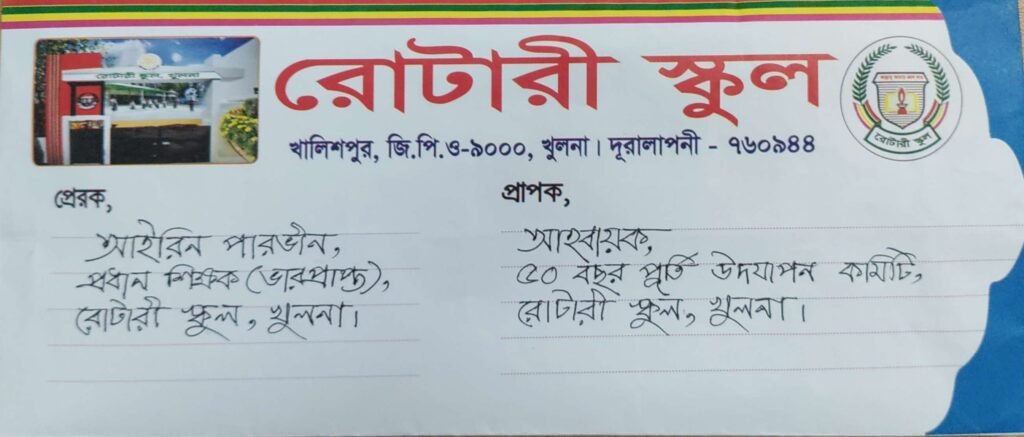 রোটারী স্কুল, খুলনা
রোটারী স্কুল
খালিশপুর, জি.পি.ও-৯০০০, খুলনা। দূরালাপনী - ৭৬০৯৪৪
রোটারী স্কুল
প্রেরক,
আইরিন পারভীন,
প্রধান শিক্ষক (ভারপ্রাপ্ত),
রোটারী স্কুল, খুলনা।
প্রাপক,
আহবায়ক,
৫০ বছর পূর্তি উদযাপন কমিটি,
রোটারী স্কুল, খুলনা।